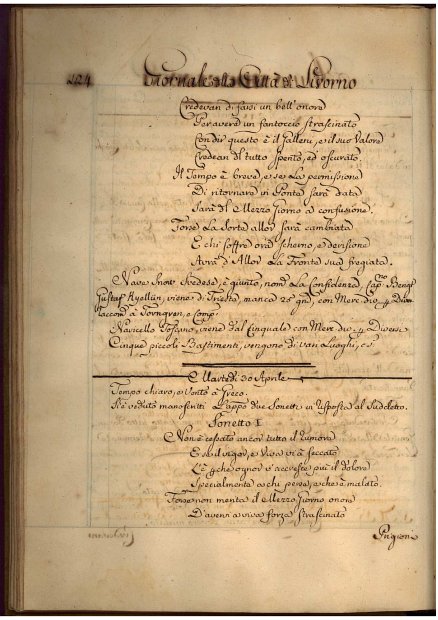 224 Giornale della Città di Livorno
Credevan di farsi un bell'onore
Per avere un fantoccio strascinato
Con dir questo è il Galleni, e il suo Valore
Credean del tutto spento, ed oscurato.
Il Tempo è breve, e se La permissione
Di ritornare in Ponte sarà data
Sarà Il Mezzo Giorno a confusione.
Forse La Sorte allor sarà cambiata
E chi soffre ora scherno, e derisione
Avrà d'Allor La Fronte sua fregiata.
Nave Svedese, è giunto, nom. La Confidenza, Cap.no Bengt
Gustaf, viene di Trieste, manca 25 gni, con Merc. div.
Raccom. a Törngren, e Comp.
Navicello Toscano, viene dal Cinquale con Merc. div. Diversi
Cinque piccoli Bastimenti, vengono di vari Luoghi, cs.
Martedì 30 Aprile
Tempo chiaro, e Vento a Greco.
Si è veduto manoscritti L'appo due Sonetti in risposta al Sudetto.
Sonetto I
Non è cessato ancor tutto il rumore
E su il vigor, e Viva si è seccato
L'è che ognor s'accresce più il dolore
Specialmente a chi perse, e che à malato.
Forse non menta il Mezzo Giorno onore
D'avervi a viva forza strascinato
Prigione